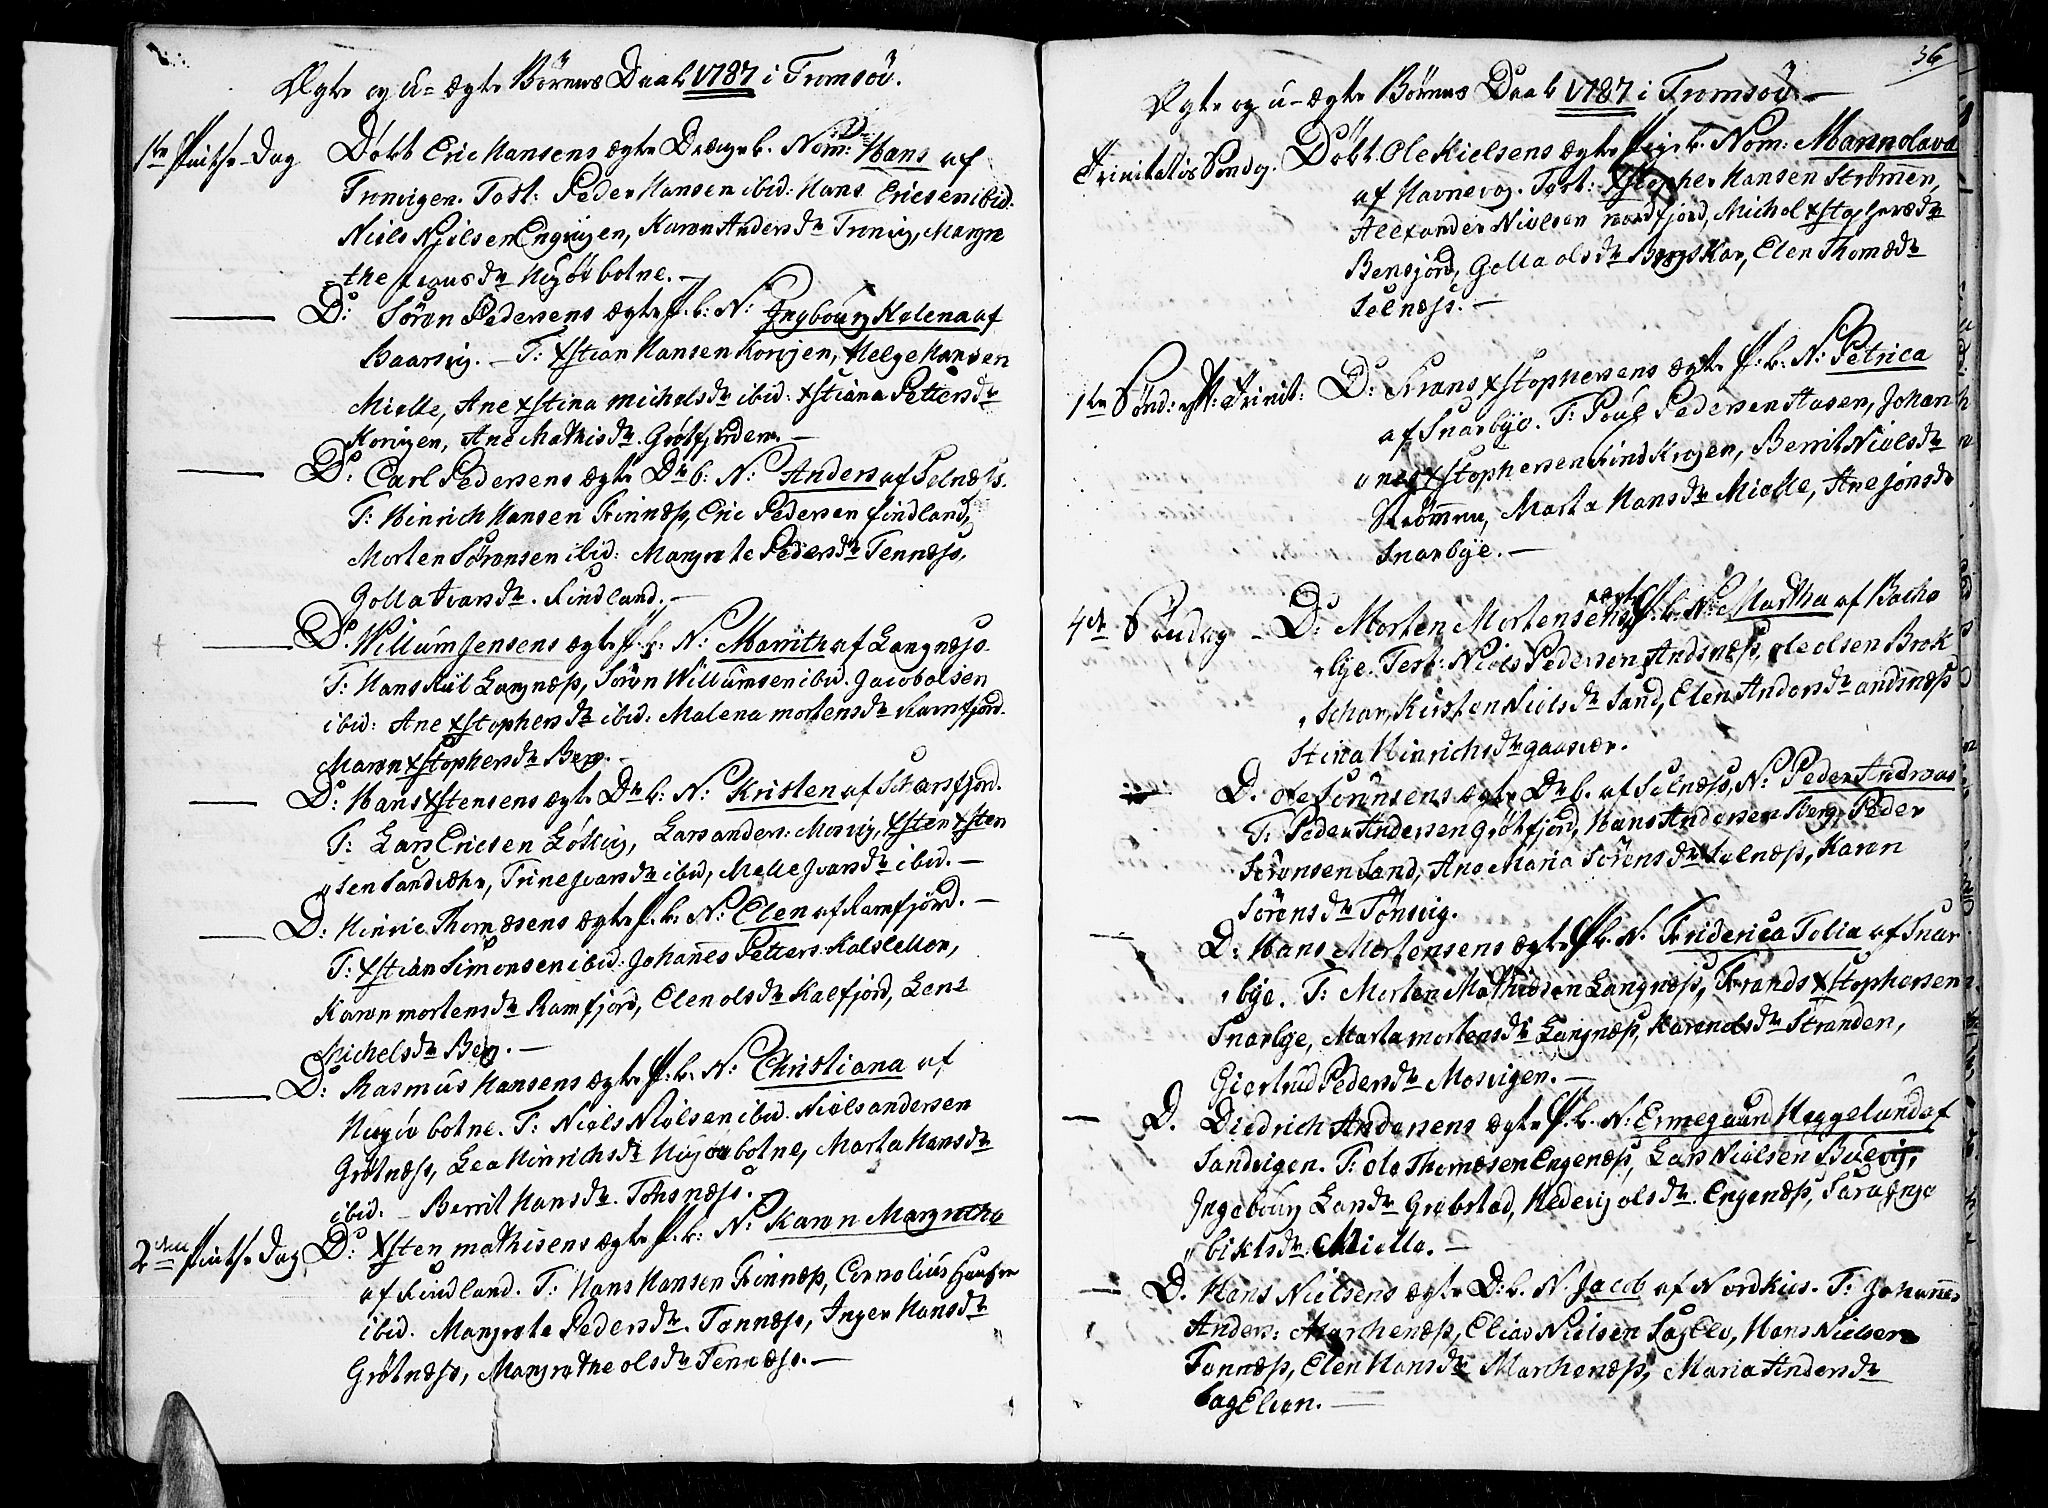 Ægte og U-ægte Börnes Daab 1787 i Tromsöe.
1ste Pintse-Dag Döbt Eric Hansens ægte Drenge b. Nom: Hans af
Tromvigen. Test: Peder Hansen ibid: Hans Ericsen ibid:
Niels Nielsen Engvigen, Karen Anders dr Tromvig, Margre
the Ivars dr Musövbotne. —
D: Sören Pedersens ægte P. b: N: Ingebourg Malena af
Baarvig. — T: Xstian Hansen Korvigen, Helge Hansen
Mielle, Ane Xstina Michels dr ibid: Xstiana Petters dr
Korvigen, Ane Mathis dr Grötfjorden. —
D: Carl Pedersens ægte Dr b: N: Anders af Selnæs.
T: Hinrich Hansen Finnæs, Eric Pedersen Findland,
Morten Sörensen ibid: Margrete Peders dr Tennæs,
Golla Ivars dr. Findland. —
D. Willum Jensens ægte P. b. N: Marrith af Langnæs.
T: Hans Kiil Langnæs, Sören Willumsen ibid. Jacob olsen
ibid: Ane Xstophers dr ibid: Malena mortens dr Ramfjord.
Maren Xstophers dr Berg. —
D: Hans Xstensens ægte Dr b: N: Kristen af Skarsfjord.
T: Lars Ericsen Lökvig, Lars anders: Mosvig, Xsten Xsten
sen Sandvæhr, Trine Ivars dr ibid, Melle Ivars dr ibid. —
D: Hinric Thomæsens ægte P. b: N: Elen af Ramfjörd. —
T: Xstian Simonsen ibid: Johannes Petters: Kalsletten,
Karen mortens dr Ramfjord, Elen ols dr Kalfjord, Lene
Michels dr Berg. —
D: Rasmus Hansens ægte P. b. N: Christiana af
Musövbotne. T: Niels Nielsen ibid. Niels andersen
Grötnæs, Lea Hinrichs dr Musövbotne, Marta Hans dr
ibid: — Berrit Hans dr. Tohsnæs.
2den Pintse Dag D: Xsten mathisens ægte P. b: N: Karen Margrethe
af Findland. T: Hans Hansen Finnæs, Cornelius Hansen
ibid. Margrete Peders dr. Tennæs, Inger Hans dr
Grötnæs, Margrethe ols dr Tennæs. —
36
Ægte og u-ægte Börnes Daab 1787 i Tromsöe. —
Trinitatis Söndag. Döbt. Ole Nielsens ægte Pige b. Nom: Maren olava
af Havnevog. Test: Xstopher Hansen Strömen,
Alexander Nielsen nordfjord, Michel Xstophers dr
Bensjord, Golla ols dr Bergskar, Elen Thomæ dr
Selnæs. —
1ste Sönd: P: Trinit: D: Frans Xstophersens ægte P. b. N: Petrica
af Snarbye. T: Poul Pedersen Aasen, Johan
nes Xstophersen Find Krogen, Berrit Niels dr
Strömen, Marta Hans dr Mielle, Ane Jons dr
Snarbye. —
4de Söndag — D: Morten Mortensens ægte P. b. N: Martha af Bache
bye. Test: Niels Pedersen Andsnæs, ole olsen Brok
skar, Kirsten Niels dr Sand, Elen Anders dr andsnæs
Stina Hinrichs dr gaasvær.
D. ole Sörensens ægte Dr b. af Selnæs, N: Peder Andreas
T: Peder Andersen Grötfjord, Hans Andersen Berg, Peder
Sörensen Sand, Ane Maria Sörens dr Selnæs, Karen
Sörens dr Tönsvig.
D: Hans Mortensens ægte P b. N: Friderica Tolia af Snar
bye. T: Morten Mathiesen Langnæs, Frands Xstophersen
Snarbye, Marta mortens dr Langnæs, Karen ols dr Stranden,
Giertrud Peders dr Mosvigen. —
D. Diedrich Andersens ægte P. b. N: Ermegaard Heggelund af
Sandvigen. T: ole Thomæsen Engenæs, Lars Nielsen Buevig,
Ingebourg Lars dr Grebstad, Hedevig ols dr. Engenæs, Sara Inge
bikts dr. Mielle. —
D. Hans Nielsens ægte D: b. N. Jacob af Nordkius. T: Johannes
Anders: Marchenæs, Elias Nielsen SagElv, Hans Nielsen
Tennæs, Elen Hans dr Marchenæs, Maria Anders dr
SagElven. —